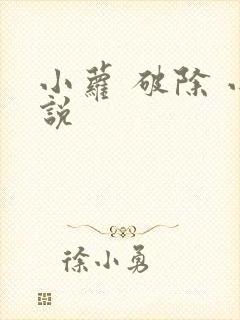 小蘿 破除 小
説
徐小勇